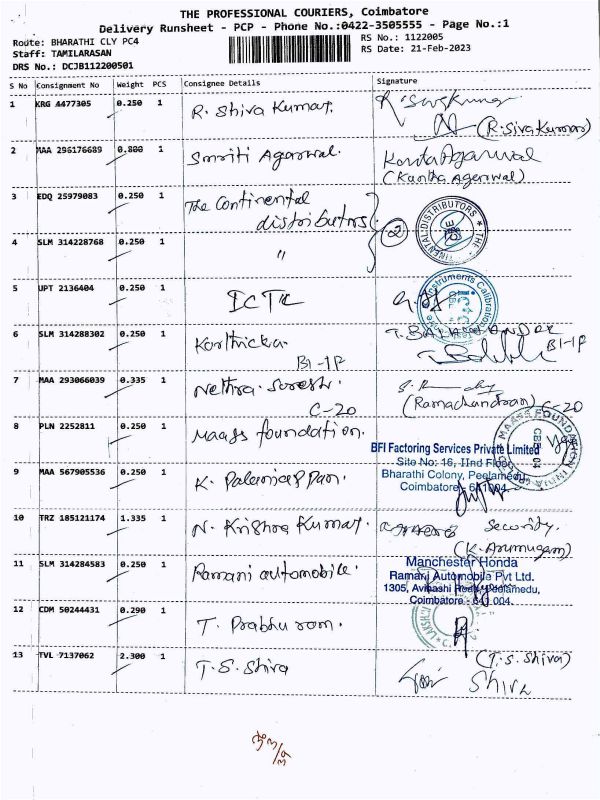 THE PROFESSIONAL COURIERS, Coimbatore
Delivery Runsheet - PCP - Phone No.:0422-3505555 - Page No.:1
Route: BHARATHI CLY PC4
Staff: TAMILARASAN
DRS No.: DCJB112200501
RS No.: 1122005
RS Date: 21-Feb-2023
S No Consignment No Weight PCS Consignee Details Signature
1 KRG 4477305 0.250 1 R. Shiva Kumar.
(R. Siva Kumar)
2 MAA 296176689 0.800 1 Smriti Agarwal. Kanta Agarwal
(Kantha Agerwal)
3 EDQ 25979083 0.250 1 The Continental
distributors 2
4 SLM 314228768 0.250 1 "
5 UPT 2136404 0.250 1 ICTC
Instruments Calibra
6 SLM 314288302 0.250 1 Karthicka.
B1-1P B1-1P
7 MAA 293066039 0.335 1 Nethra Suresh.
C-20 (Ramachandran) C-20
8 PLN 2252811 0.250 1 Maass foundation.
MAASS FOUNDATION INDIA
CBE - 04
BFI Factoring Services Private Limited
Site No: 16, IInd Floor
Bharathi Colony, Peelamedu
Coimbatore - 641004.
9 MAA 567905536 0.250 1 K. Palaniappan.
10 TRZ 185121174 1.335 1 N. Krishna Kumar. Security.
(K. Arumugam)
11 SLM 314284583 0.250 1 Ramani automobile.
Manchester Honda
Ramani Automobile Pvt Ltd.
1305, Avinashi Road, Peelamedu,
Coimbatore - 641 004.
12 CDM 50244431 0.290 1 T. Prabhu ram.
13 TVL 7137062 2.300 1 T.S. Shiva (T.S. Shiva)
Shiva